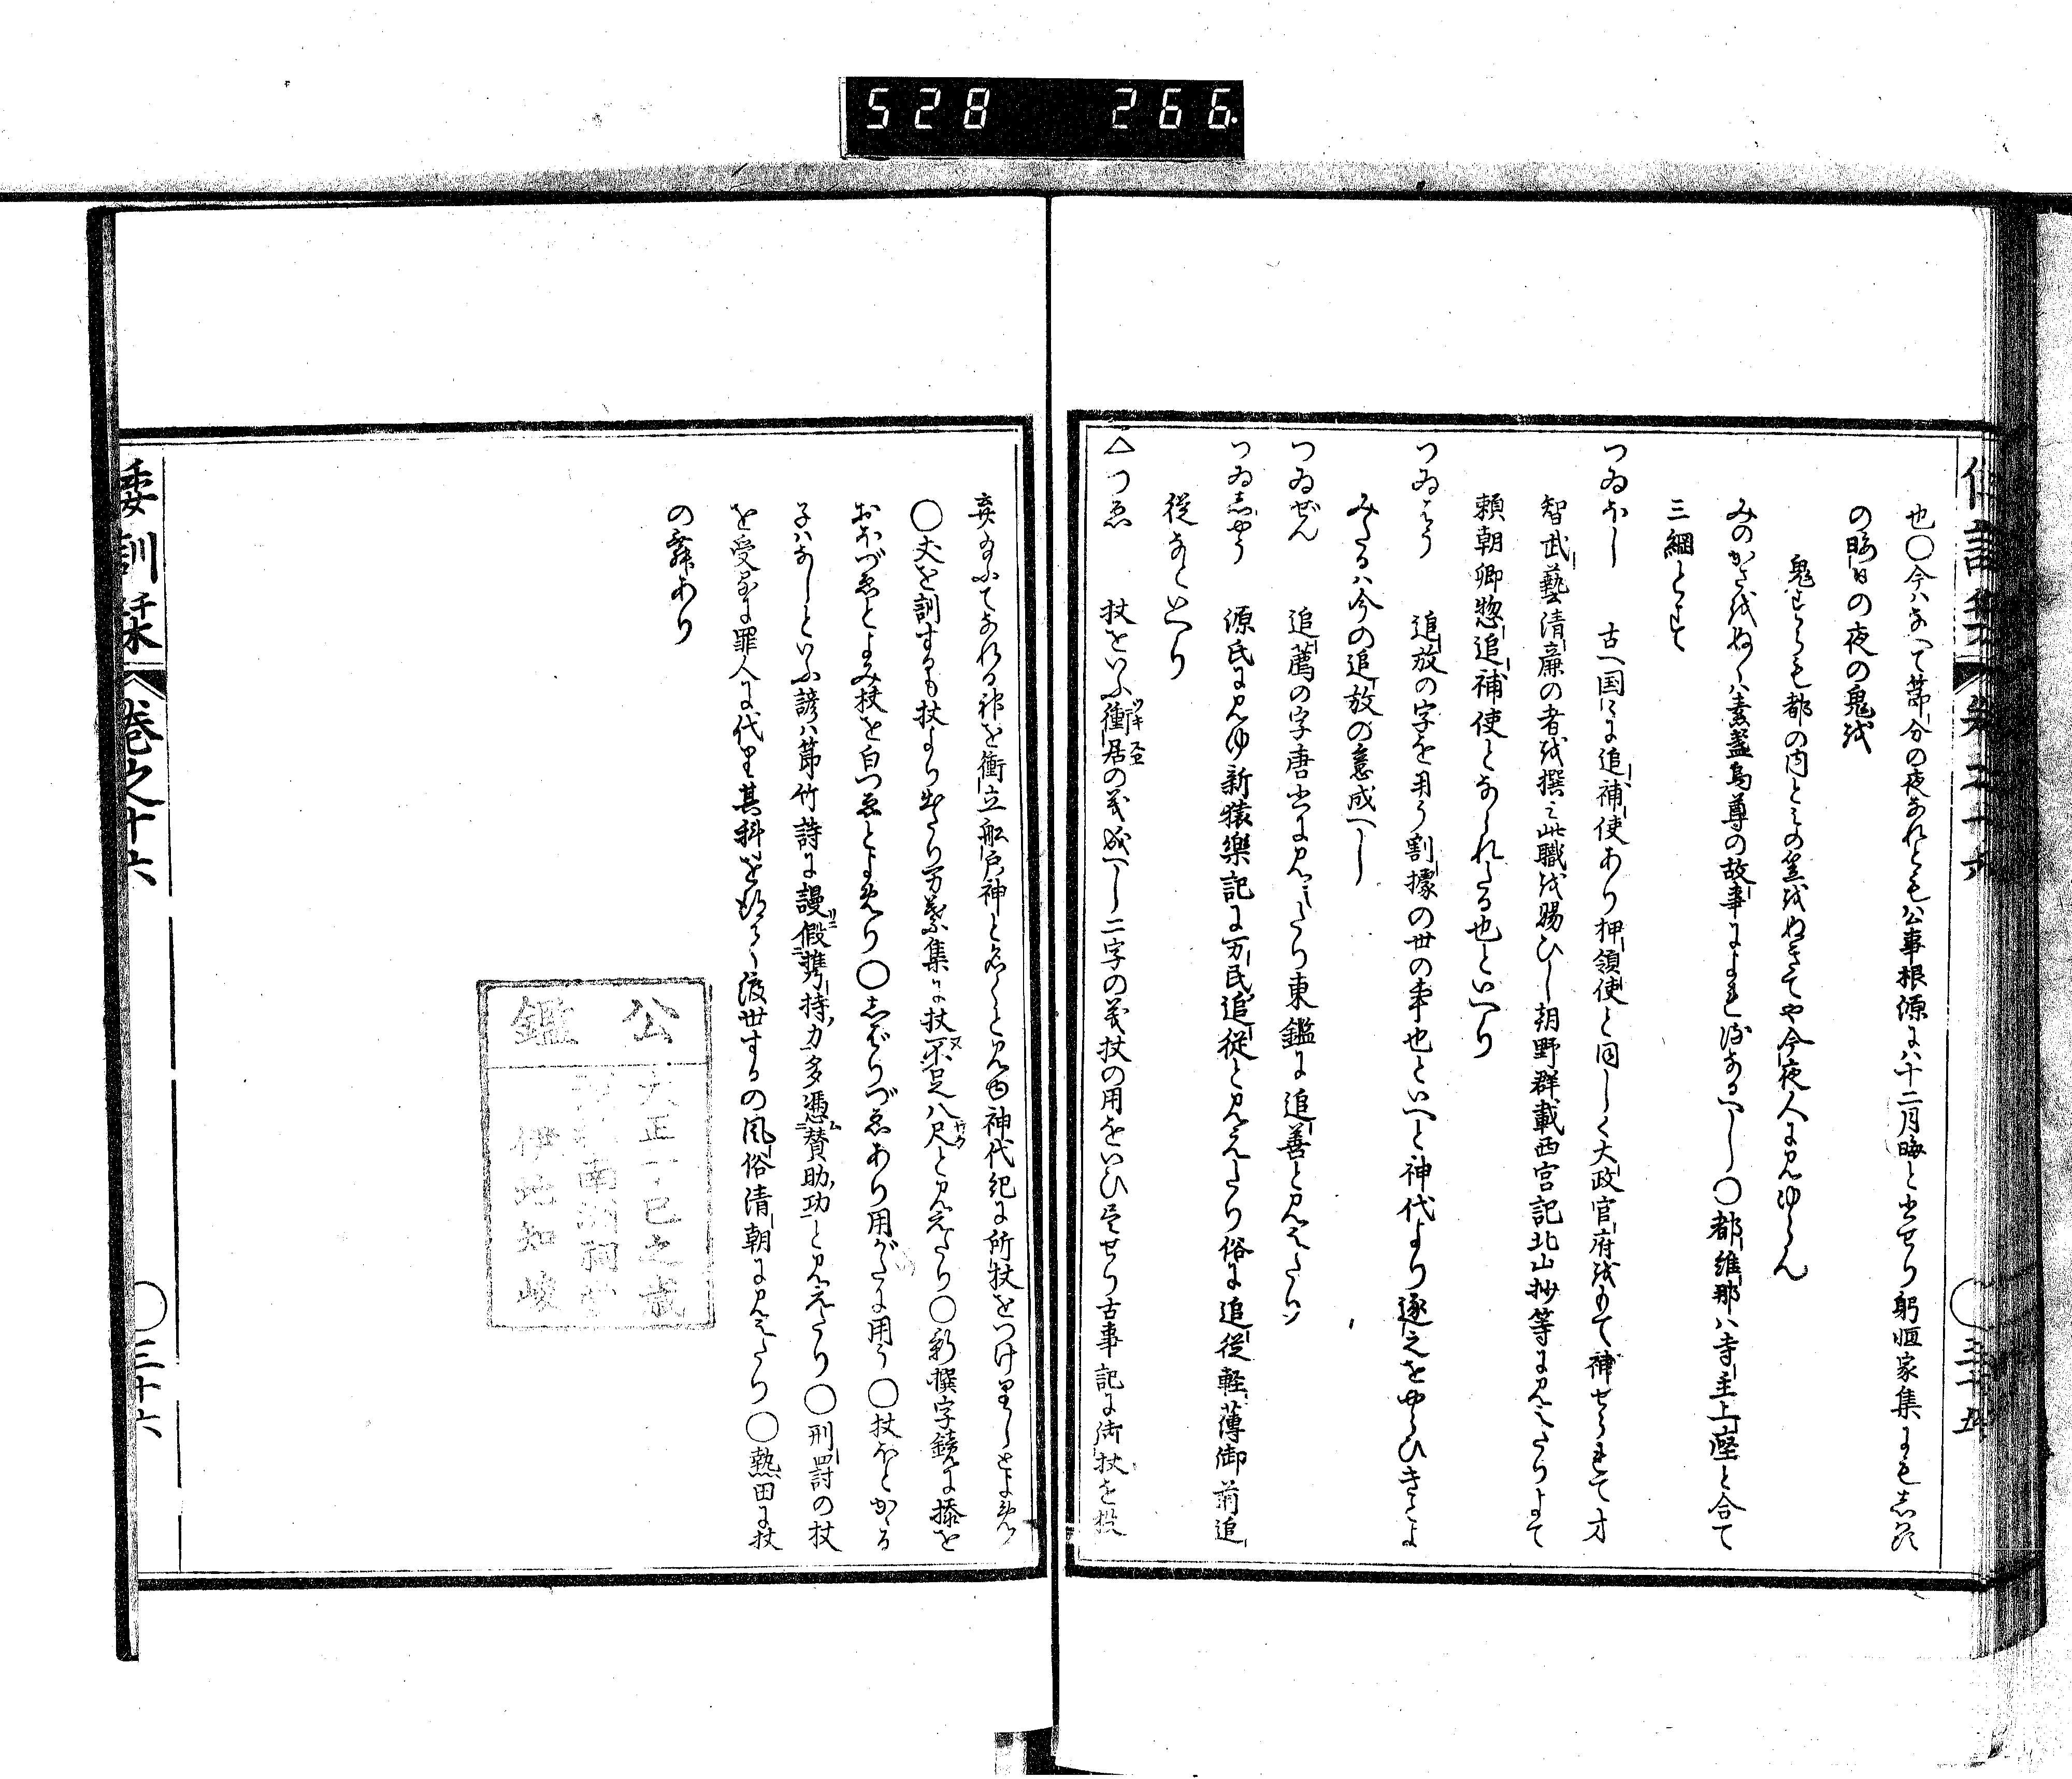 528 266
也○今ハなへて節分の夜なれとも公事根源にハ十二月晦と出せり躬恒家集にもしはす
の晦日の夜の鬼を
鬼すらも都の内とみの笠をぬきてや今夜人に見ゆらん
みのかさをぬくハ素盞烏尊の故事によれるなるへし○都維那ハ寺主上座と合て
三綱とす
つゐふし 古へ国々に追補使あり押領使と同しく大政官府をもて補せられて才
智武藝清廉の者を撰み此職を賜ひし朝野群載西宮記北山抄等に見えたりよて
頼朝卿惣追補使となられたる也といへり
つゐはう 追放の字を用う割據の世の事也といへと神代より逐之をやらひきとよ
みたるハ今の追放の意成へし
つゐぜん 追薦の字唐書に見えたり東鑑に追善と見えたり
つゐしやう 源氏に見ゆ新猿樂記に万民追従と見えたり俗に追従軽薄御前追
従なといへり
△つゑ 杖をいふ衝居の義成へし二字の義杖の用をいひ尽せり古事記に御杖を投
棄給ふてなれる神を衝立船戸神と名くと見ゆ神代紀に所杖をつけりしとよめり
○丈を訓するも杖より出たり万葉集に杖不足八尺と見えたり○新撰字鏡に㯃を
おほづゑとよみ杖を白つゑとよめり○しばりづゑあり用がたに用う○杖ほとかゝる
子ハなしといふ諺ハ節竹詩に謾假携持力多憑賛助功と見えたり○刑罰の杖
を受るに罪人に代り其科を助けて渡世するの風俗清朝に見えたり○熱田に杖
の舞あり
公鑑
大正丁巳之歳
伊地知峻
倭訓栞 巻之十六 ○三十六